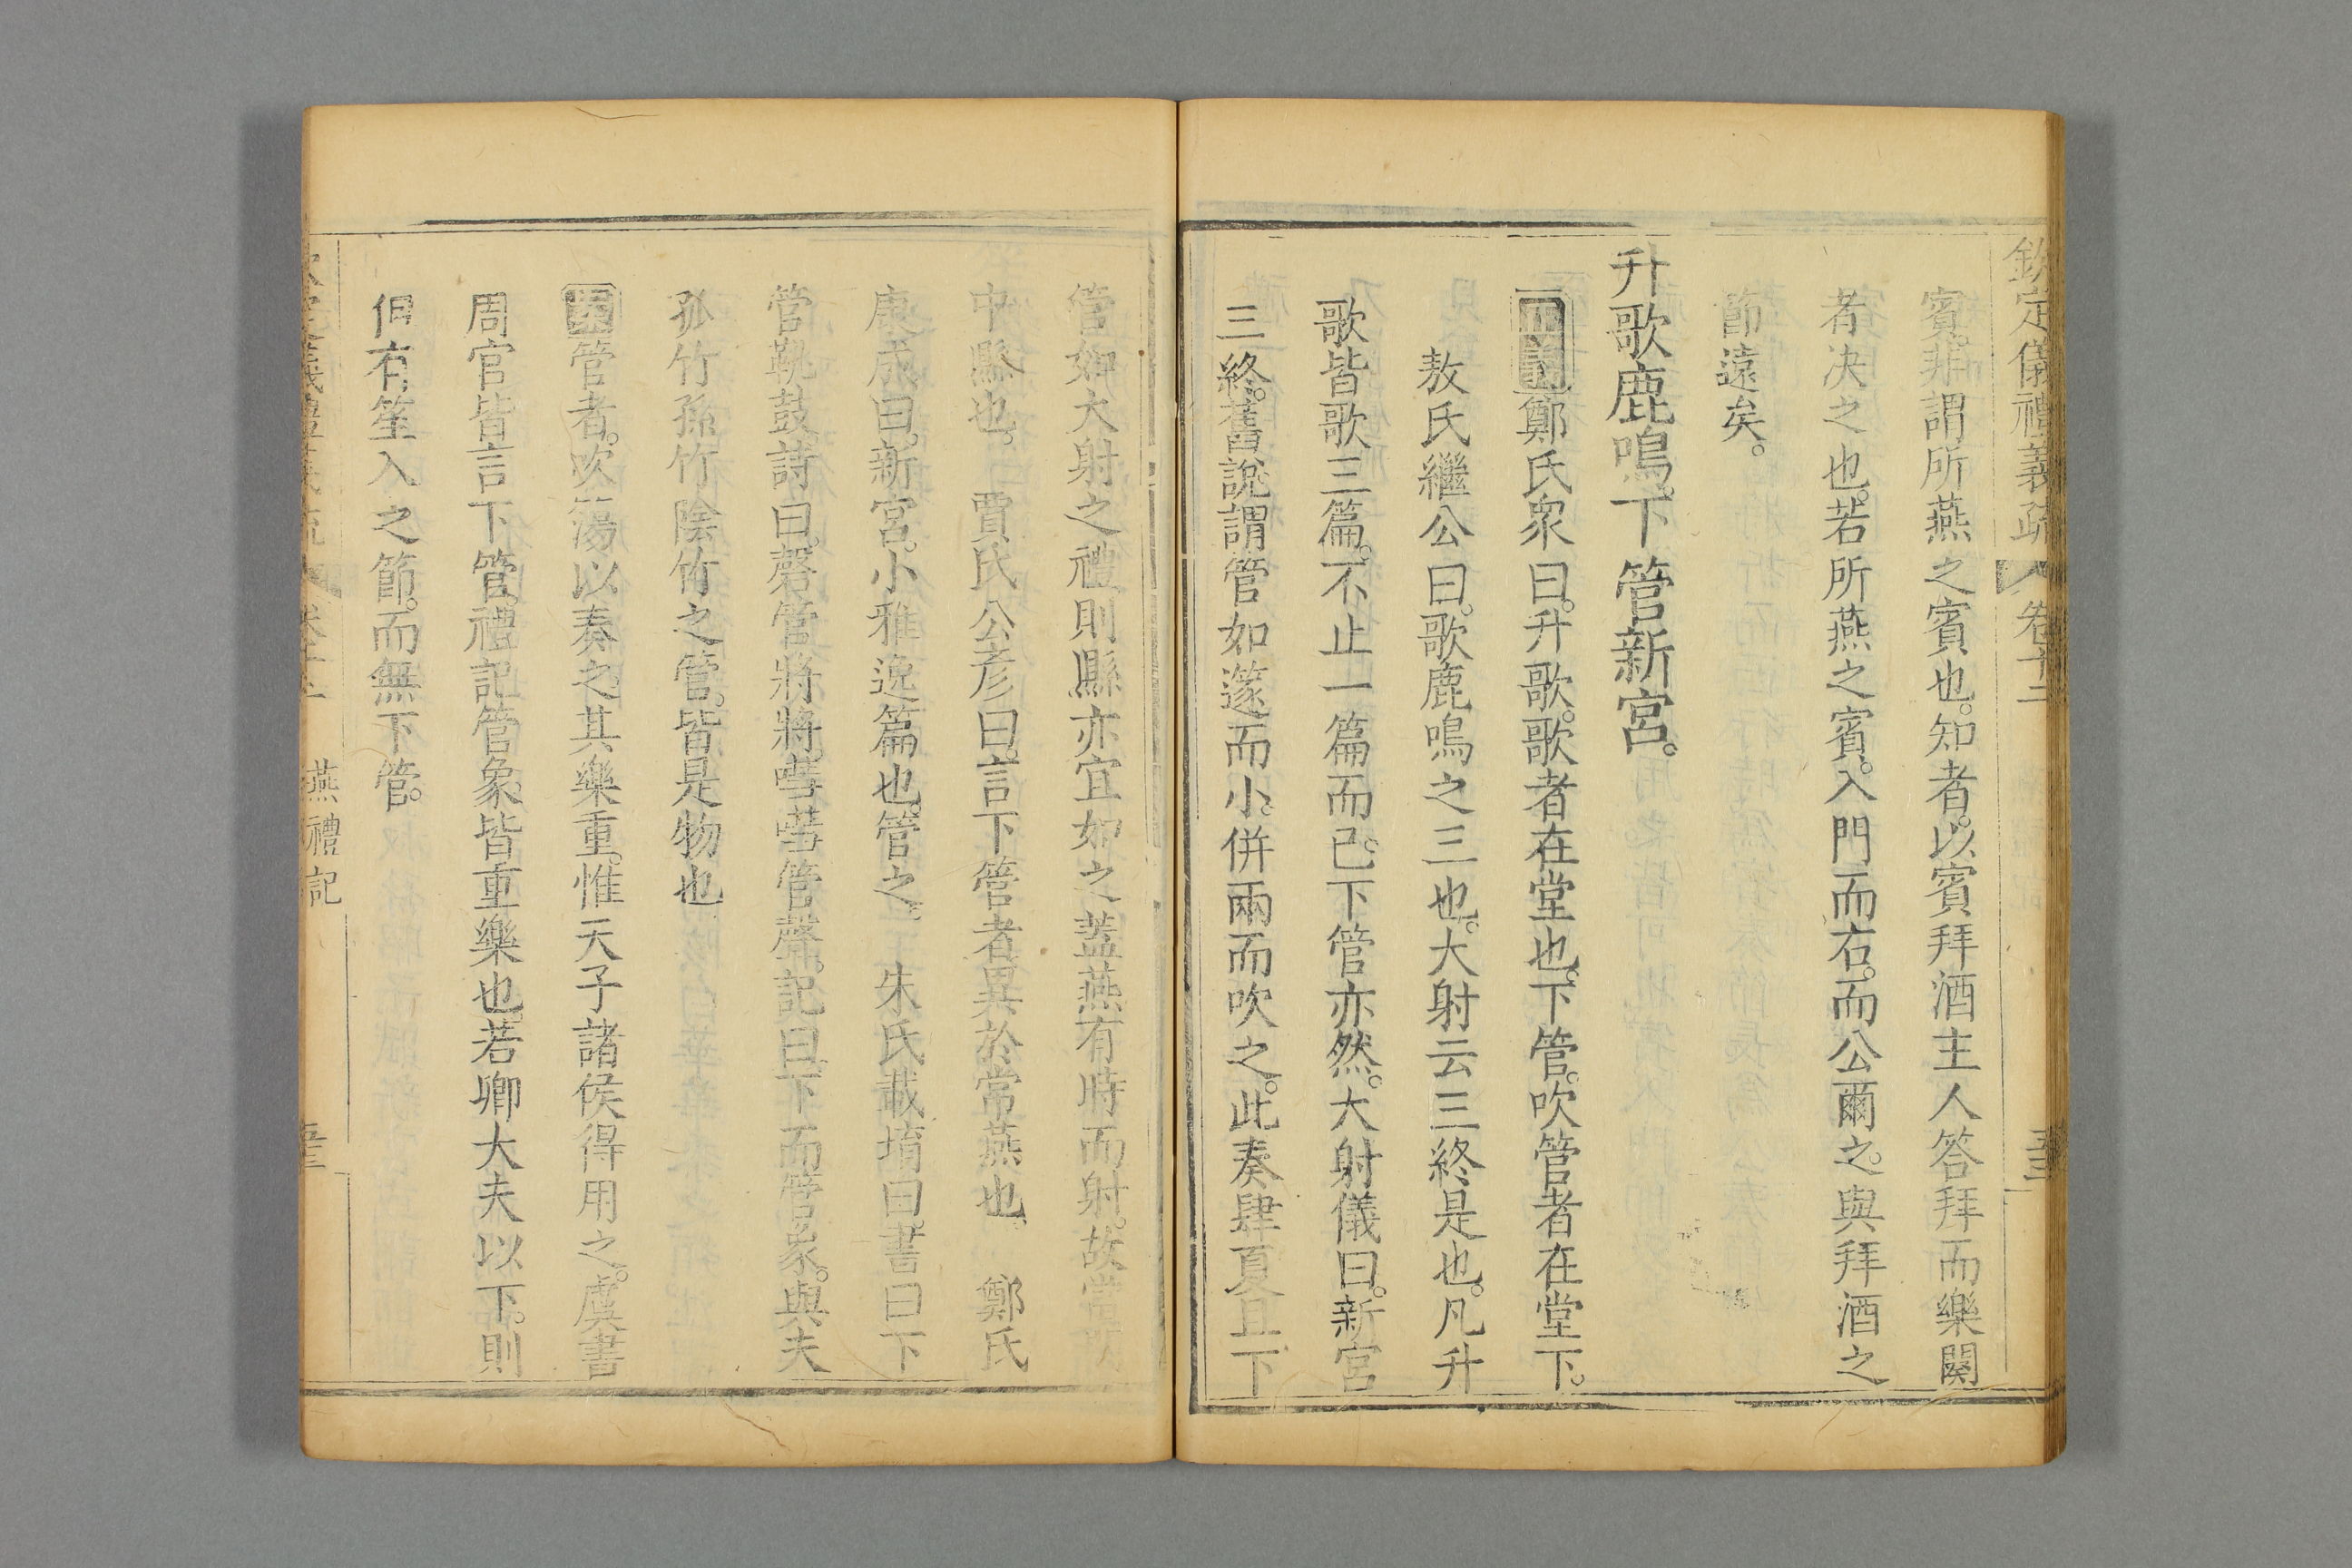 欽定儀禮義疏 卷十二
賓非謂所燕之賓也。知者。以賓拜酒主人答拜而樂闋
者决之也。若所燕之賓。入門而右。而公爾之。與拜酒之
節遠矣。
升歌鹿鳴。下管新宮。
正義鄭氏衆曰。升歌。歌者在堂也。下管。吹管者在堂下。
敖氏繼公曰。歌鹿鳴之三也。大射云三終是也。凡升
歌皆歌三篇。不止一篇而已。下管亦然。大射儀曰。新宮
三終。舊說謂管如篴而小。併兩而吹之。此奏肆夏且下
管如大射之禮則縣亦宜如之蓋燕有時而射。故當
中縣也。 賈氏公彥曰。言下管者異於常燕也。 鄭氏
康成曰。新宮。小雅逸篇也。管之。 朱氏載堉曰。書曰下
管鞉鼓。詩曰。磬管將將嘒嘒管聲。記曰。下而管象。與夫
孤竹孫竹陰竹之管。皆是物也
案管者。吹簜以奏之其樂重。惟天子諸侯得用之。虞書
周官皆言下管。禮記管象。皆重樂也。若卿大夫以下。則
但有笙入之節。而無下管。
燕禮記